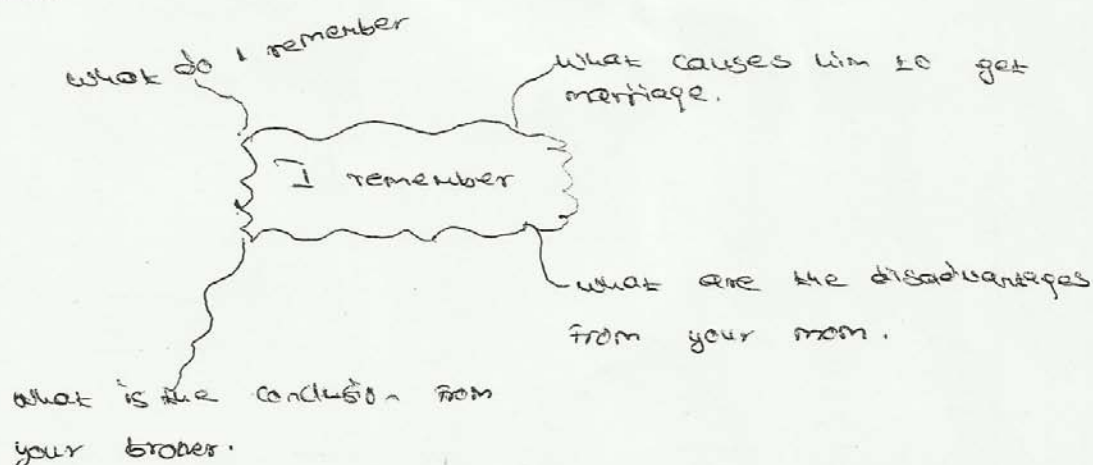 what do I remember
what causes him to get
marriage.
I remember
what are the disadvantages
from your mom.
what is the conclusion from
your broher.